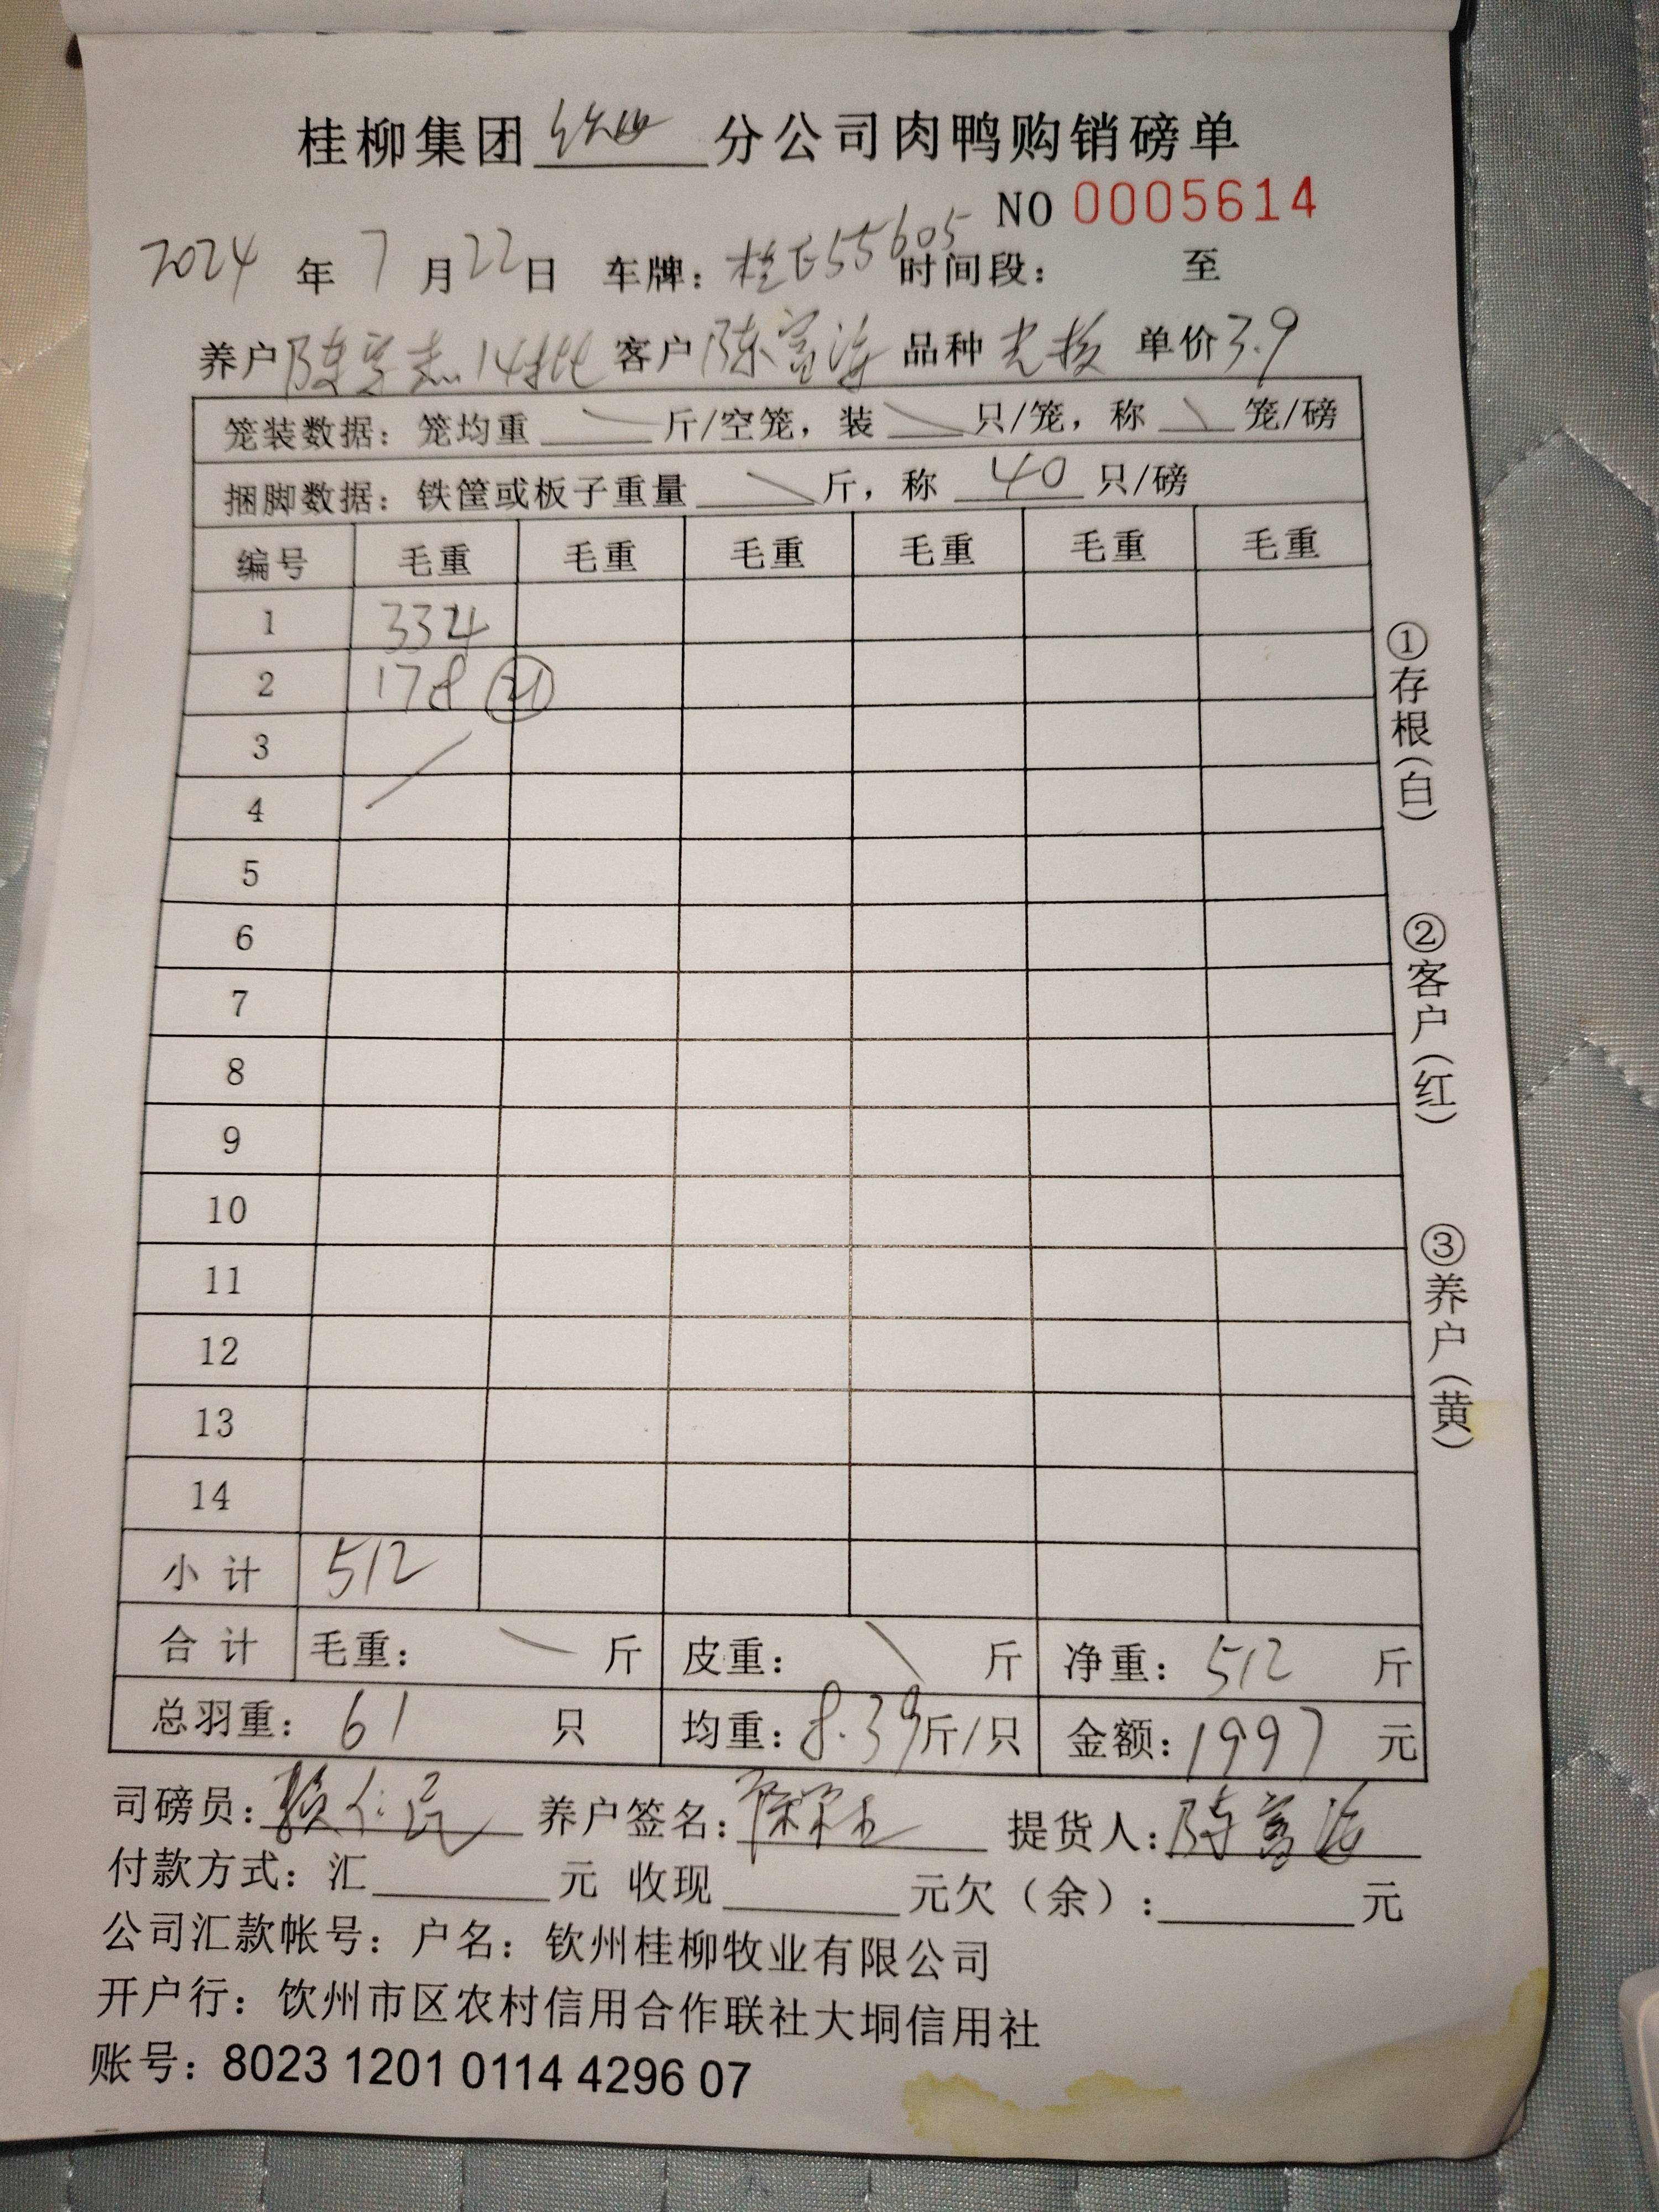 桂柳集团 分公司肉鸭购销磅单
NO 0005614
2024 年 7 月 22 日 车牌: 桂E55605 时间段: 至
养户 陈 14批 客户 陈富海 品种 单价 3.9
笼装数据: 笼均重 斤/空笼, 装 只/笼, 称 笼/磅
捆脚数据: 铁筐或板子重量 斤, 称 40 只/磅
编号 毛重 毛重 毛重 毛重 毛重 毛重
1 334
2 178 21
3
4
5
6
7
8
9
10
11
12
13
14
小计 512
合计 毛重: 斤 皮重: 斤 净重: 512 斤
总羽重: 61 只 均重: 8.39 斤/只 金额: 1997 元
司磅员: 养户签名: 提货人: 陈富海
付款方式: 汇 元 收现 元欠(余): 元
公司汇款帐号: 户名: 钦州桂柳牧业有限公司
开户行: 饮州市区农村信用合作联社大垌信用社
账号: 8023 1201 0114 4296 07
①存根(白)
②客户(红)
③养户(黄)